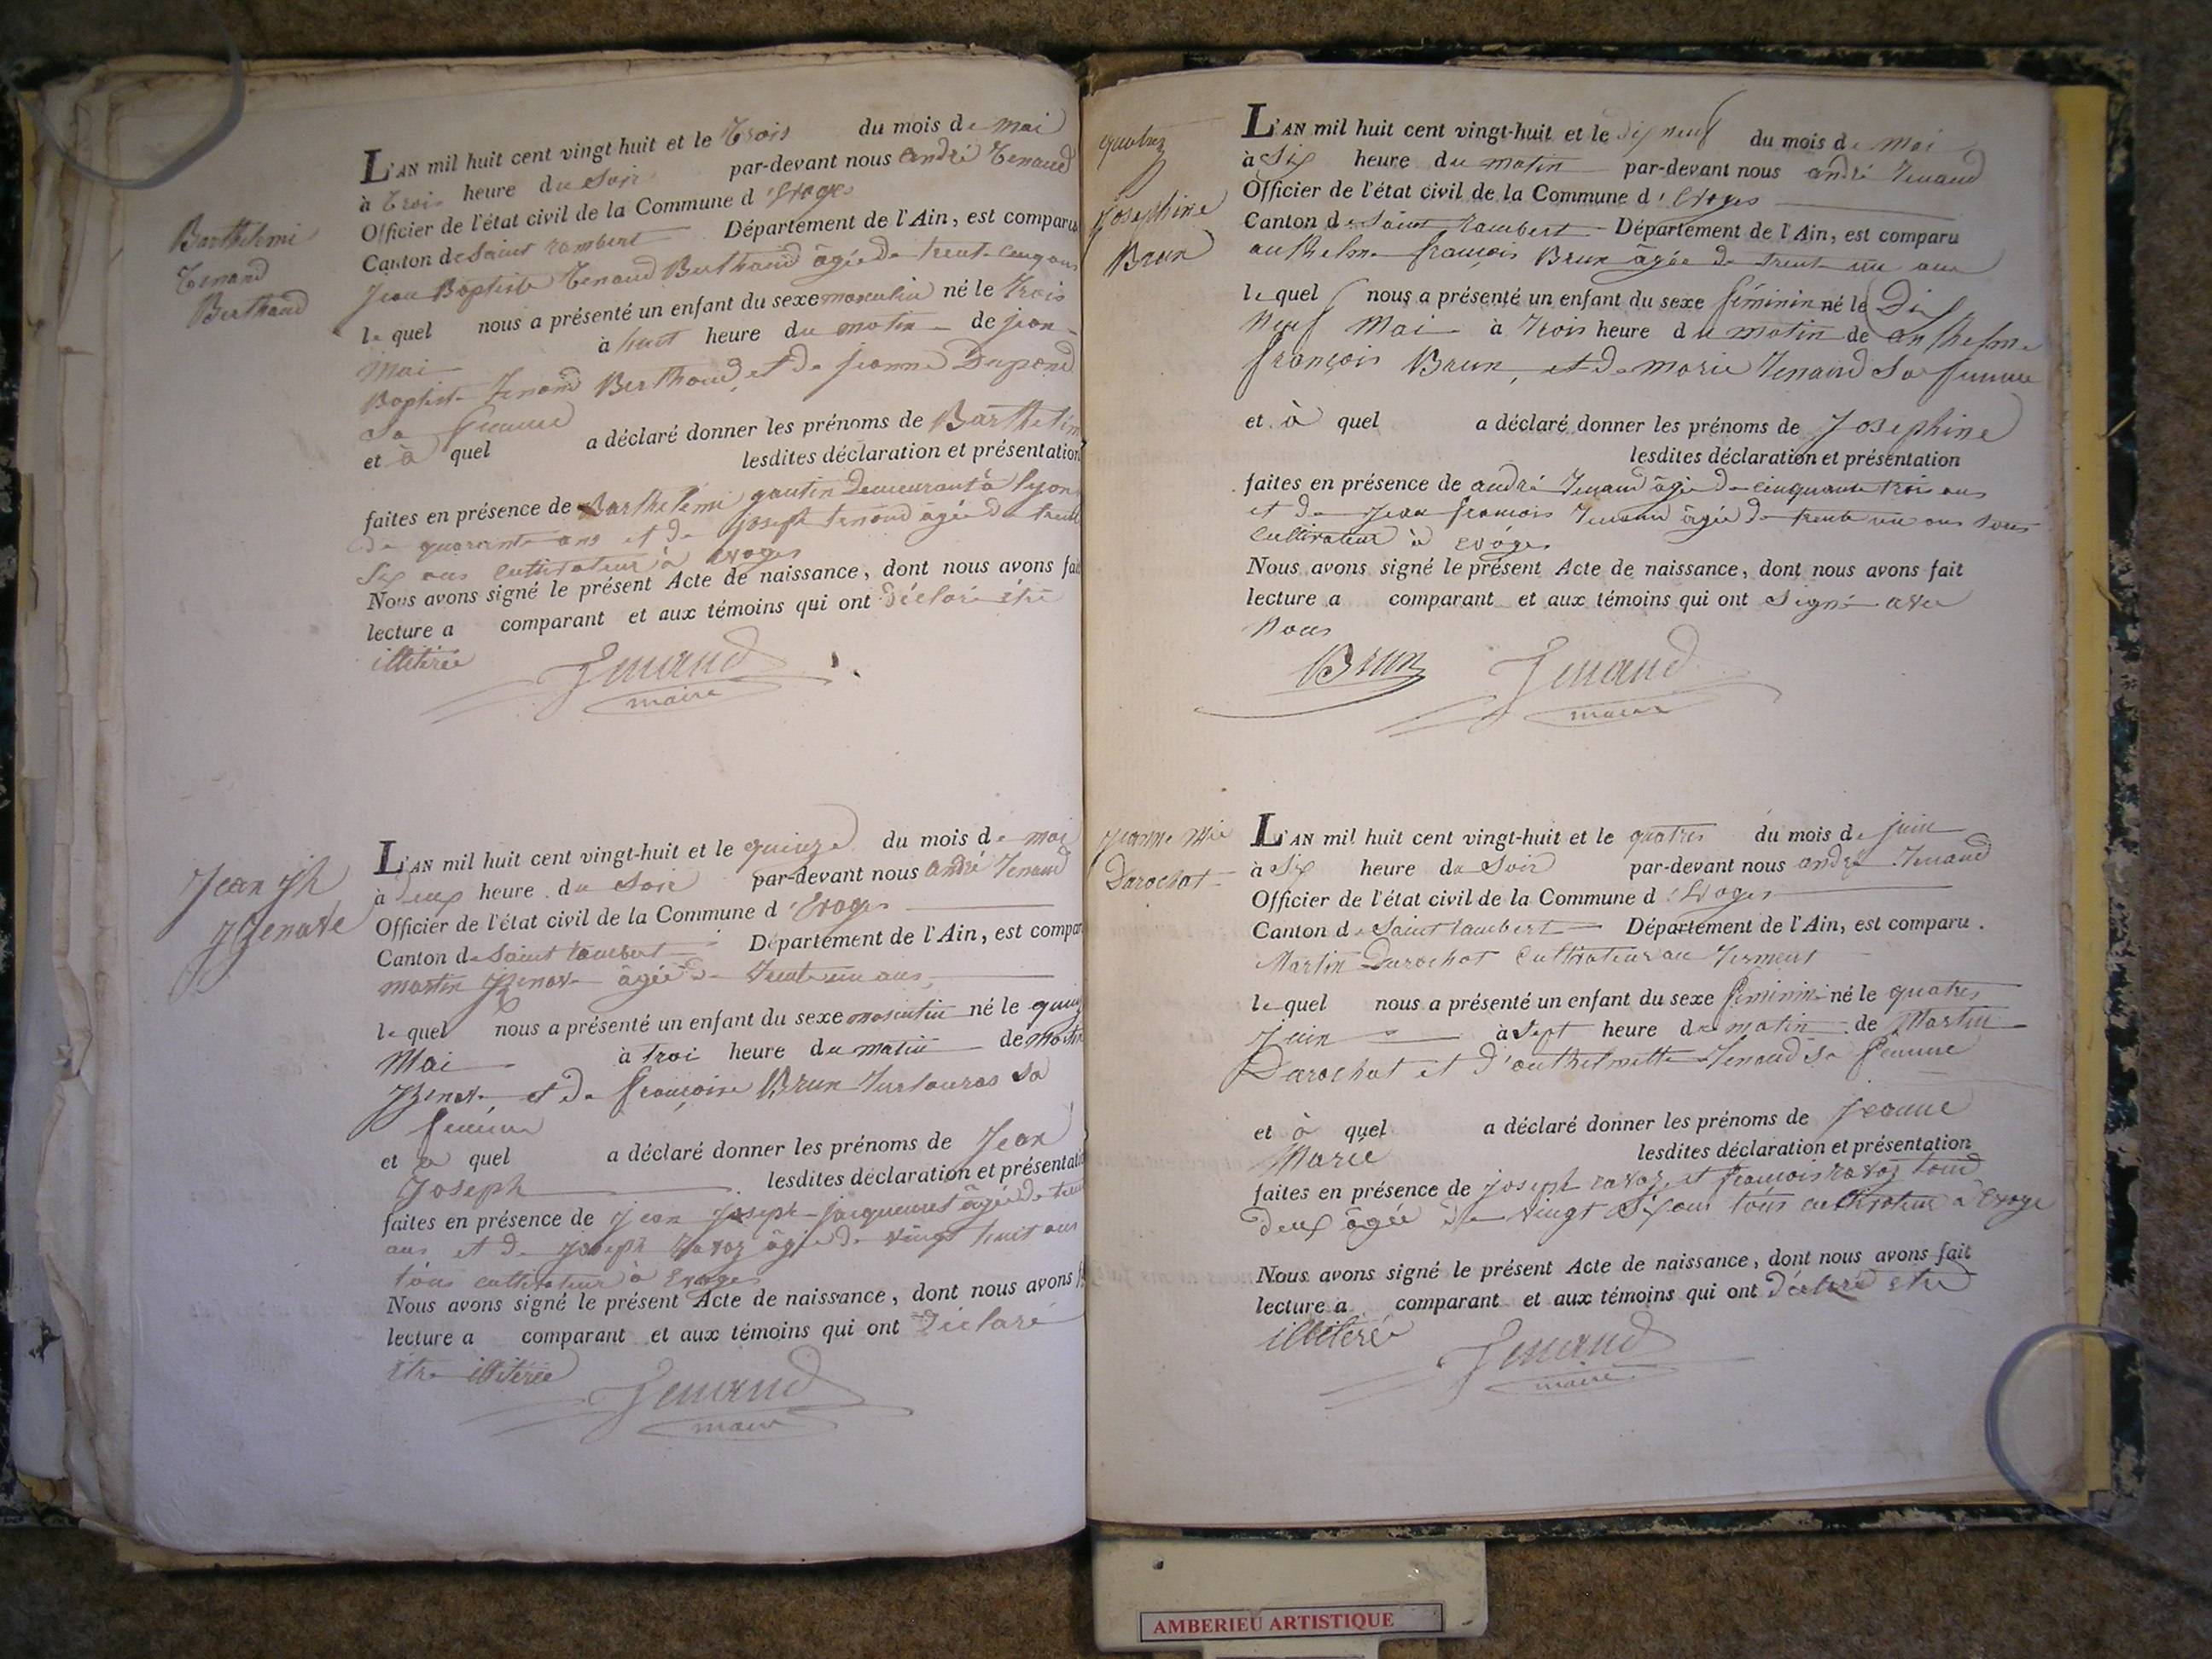 Barthelemi
Tenand
Berthand
L'AN mil huit cent vingt huit et le Trois du mois de mai
à trois heure du Soir par-devant nous andré Tenand
Officier de l'état civil de la Commune d'Evoges
Canton de Saint rambert Département de l'Ain, est comparu
Jean Baptiste Tenand Berthand âgée de trente cinq ans
le quel nous a présenté un enfant du sexe masculin né le trois
Mai à huit heure du matin de jean
Baptiste Tenand Berthand et de jeanne Dupond
Sa femme
et à quel a déclaré donner les prénoms de Barthelemi
lesdites déclaration et présentation
faites en présence de Barthelemi gautin demeurant à lyon
de quarante ans et de joseph tenand âgée de trente
Six ans cultivateur à Evoges
Nous avons signé le présent Acte de naissance, dont nous avons fait
lecture a comparant et aux témoins qui ont déclaré être
illitérée
Tenand
maire
Jean Jh
L'AN mil huit cent vingt-huit et le quinze du mois de mai
à deux heure du Soir par-devant nous andré Tenand
Officier de l'état civil de la Commune d'Evoges
Canton de Saint rambert Département de l'Ain, est compar
martin âgée de trente un ans
le quel nous a présenté un enfant du sexe masculin né le quinz
Mai à troi heure du matin de Martin
et de françoise Brun sa
femme
et à quel a déclaré donner les prénoms de Jean
Joseph lesdites déclaration et présentati
faites en présence de Jean Joseph jacquemet âgée de
ans et de Joseph ravoz âgée de vingt huit ans
tous cultivateur à Evoges
Nous avons signé le présent Acte de naissance, dont nous avons f
lecture a comparant et aux témoins qui ont Déclaré
être illitérée
Tenand
maire
Josephine
Brun
L'AN mil huit cent vingt-huit et le dix neuf du mois de mai
à Six heure du matin par-devant nous andré Tenand
Officier de l'état civil de la Commune d'Evoges
Canton de Saint rambert Département de l'Ain, est comparu
anthelme françois Brun âgée de trente un ans
le quel nous a présenté un enfant du sexe féminin né le Dix
Neuf Mai à trois heure du matin de anthelme
françois Brun, et de marie Tenand Sa femme
et à quel a déclaré donner les prénoms de Josephine
lesdites déclaration et présentation
faites en présence de andré Tenand âgée de cinquante trois ans
et de Jean francois Tenand âgée de trente un ans tous
cultivateur à evoges
Nous avons signé le présent Acte de naissance, dont nous avons fait
lecture a comparant et aux témoins qui ont Signé avec
Nous
Brun Tenand
maire
Jeanne Mie
Darochat
L'AN mil huit cent vingt-huit et le quatres du mois de juin
à Six heure du Soir par-devant nous andré Tenand
Officier de l'état civil de la Commune d'Evoges
Canton de Saint rambert Département de l'Ain, est comparu.
Martin Darochat Cultivateur au
le quel nous a présenté un enfant du sexe féminin né le quatres
Juin à Sept heure du matin de Martin
Darochat et d'anthelmette Tenand Sa femme
et à quel a déclaré donner les prénoms de Jeanne
Marie lesdites déclaration et présentation
faites en présence de joseph ravoz et francois ravoz tous
deux âgée de vingt Six ans tous cultivateur à Evoge
Nous avons signé le présent Acte de naissance, dont nous avons fait
lecture a comparant et aux témoins qui ont déclaré etre
illiterée
Tenand
maire
AMBERIEU ARTISTIQUE